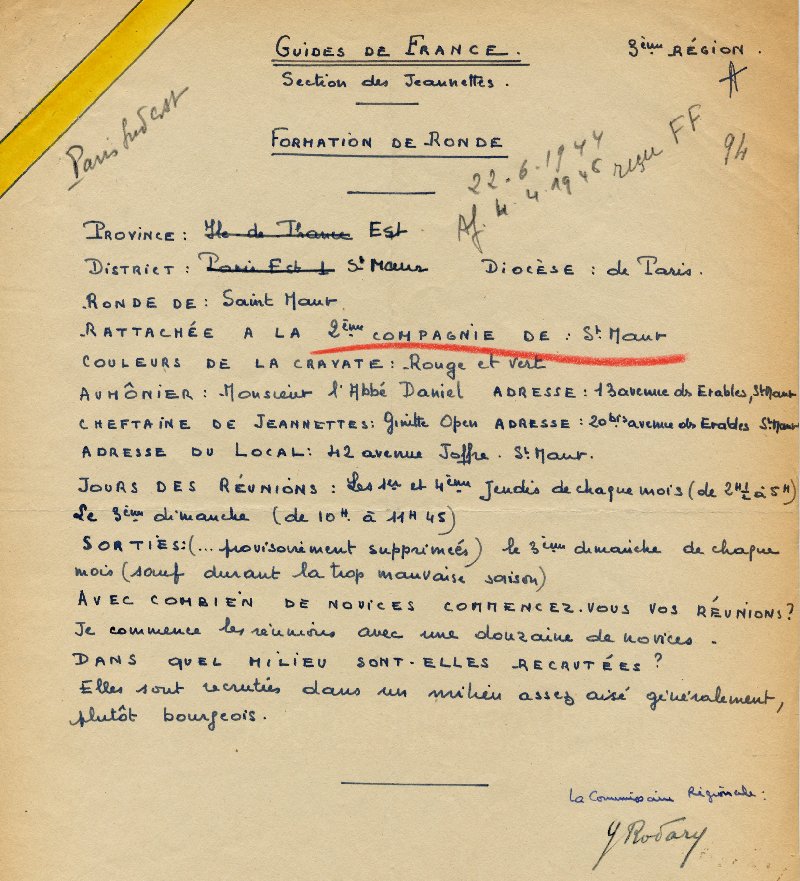 GUIDES DE FRANCE.
3ème RÉGION.
Section des Jeannettes.
A
Paris Sud Est
FORMATION DE RONDE
22.6.1944
Af. 4.4.1946 reçu FF
94
PROVINCE: Ile de France Est
DISTRICT: Paris Est 1 St Maur DIOCÈSE: de Paris.
RONDE DE: Saint Maur
RATTACHÉE A LA 2ème COMPAGNIE DE: St Maur
COULEURS DE LA CRAVATE: Rouge et vert
AUMÔNIER: Monsieur l'Abbé Daniel ADRESSE: 13 avenue des Erables, St Maur
CHEFTAINE DE JEANNETTES: Ginette Open ADRESSE: 20bis avenue des Erables St Maur
ADRESSE DU LOCAL: 42 avenue Joffre. St Maur.
JOURS DES RÉUNIONS: Les 1er et 4ème Jeudis de chaque mois (de 2H1/2 à 5H)
Le 3ème dimanche (de 10H. à 11H 45)
SORTIES: (... provisoirement supprimées) le 3ème dimanche de chaque
mois (sauf durant la trop mauvaise saison)
AVEC COMBIEN DE NOVICES COMMENCEZ-VOUS VOS RÉUNIONS?
Je commence les réunions avec une douzaine de novices.
DANS QUEL MILIEU SONT-ELLES RECRUTÉES?
Elles sont recrutées dans un milieu assez aisé généralement,
plutôt bourgeois.
La Commissaire Régionale:
Y Rodary